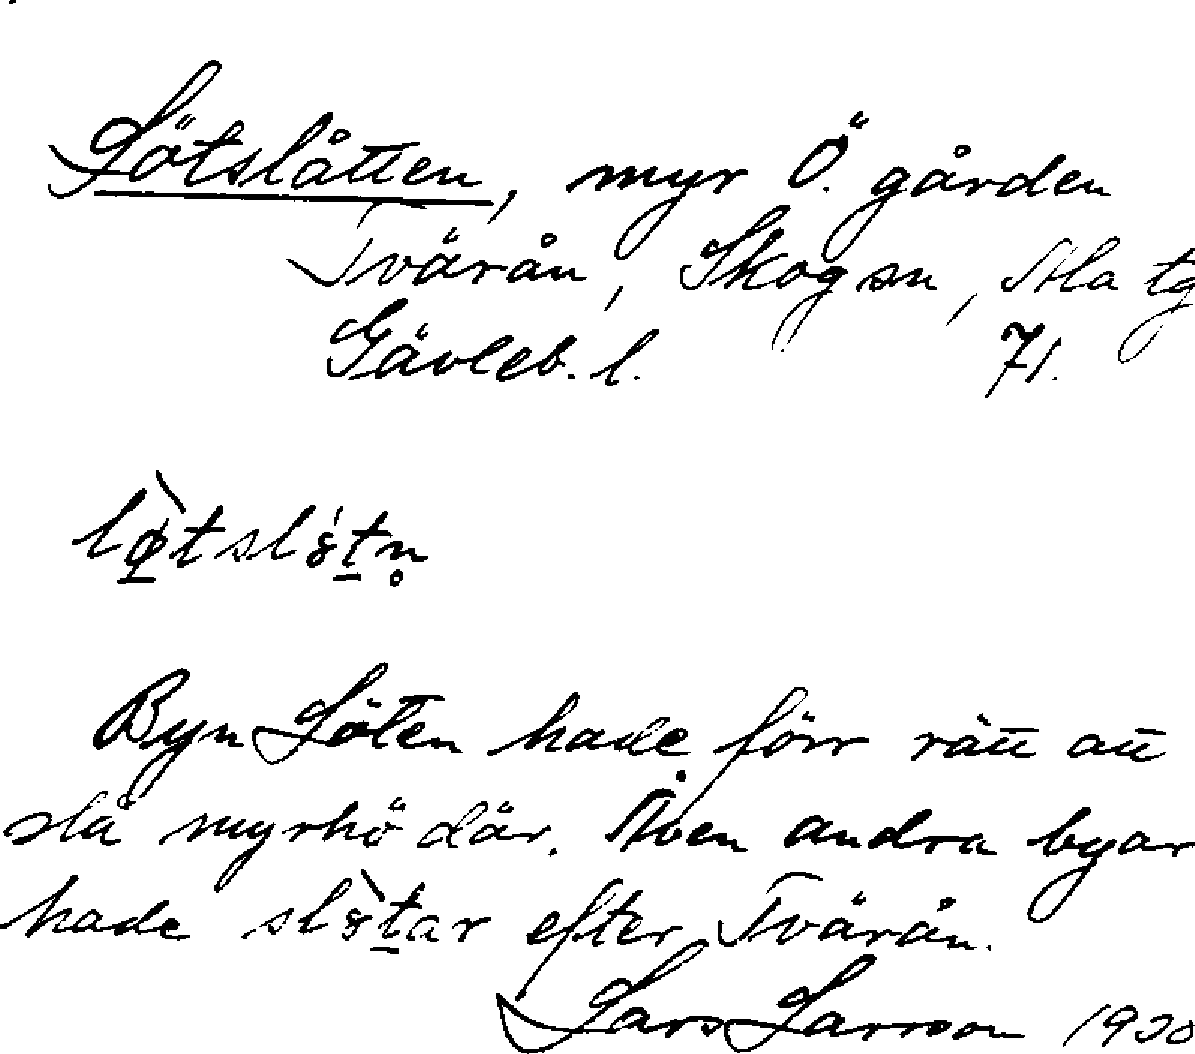 Lötslåtten, myr Ö. gården
Tvärån, Skog sn, Ala tg
Gävleb. l. 71.
lø̀tslt̠n̥
Byn Löten hade förr rätt att
slå myrhö där. Även andra byar
hade slt̠ar efter Tvärån.
Lars Larsson 1930